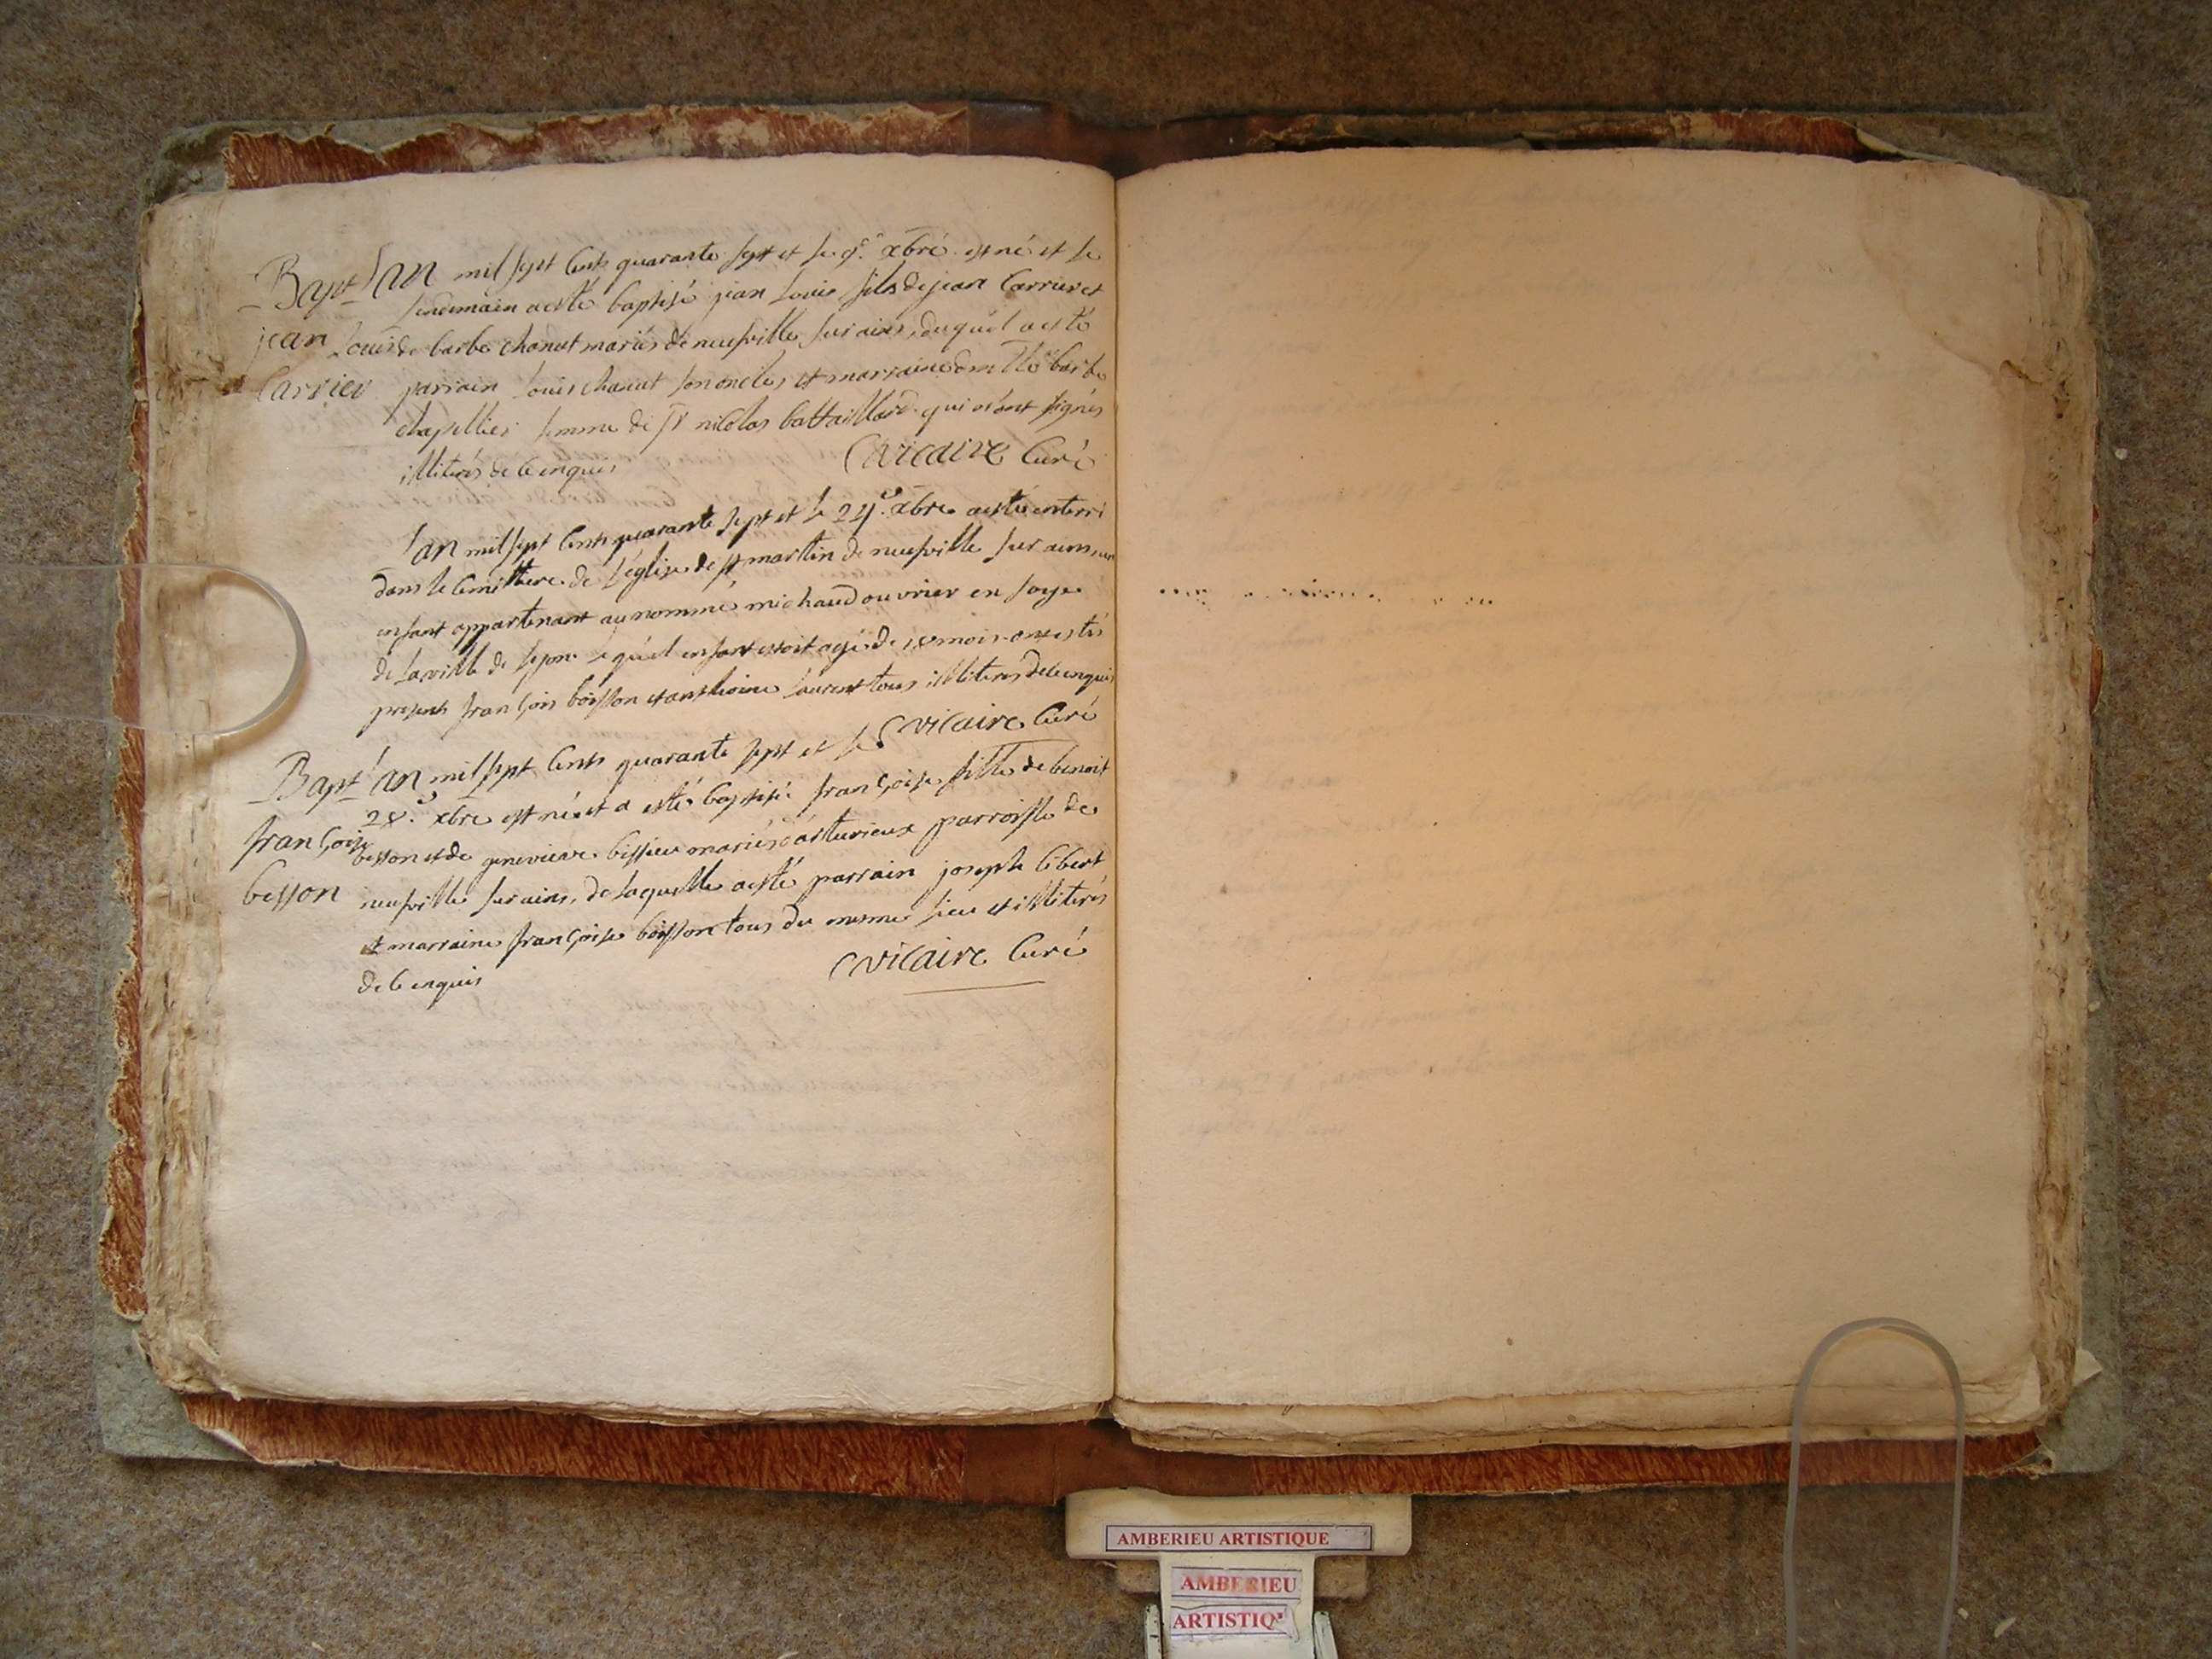 Bapt l'an mil sept cents quarante sept et le 9e xbre est né et le
jean Louis Carrier
lendemain a esté baptisé jean Louis fils de jean Carrier et
de barbe chanut mariés de neufville sur ains, duquel a esté
parrain Louis chanut son oncle, et marraine barbe
chapellier femme de Sr nicolas battaillard qui n'ont signés
illiterés de ce enquis
Cvicaire Curé
l'an mil sept cents quarante sept et le 24e xbre a esté enterré
dans le cemittere de l'église de st martin de neufville sur ains, un
enfant appartenant au nommé michaud ouvrier en soye
de la ville de lyon lequel enfant estoit agé de mois ont estés
presents françois boisson et anthoine laurent tous illiterés de ce enquis
Cvicaire Curé
Bapt l'an mil sept cents quarante sept et le
françoise besson
28e xbre est née et a esté baptisée françoise fille de benoit
besson et de genevieve bissieu mariés parroisse de
neufville sur ains, de laquelle a esté parrain joseph
et marraine françoise boisson tous du mesme lieu et illiterés
de ce enquis
Cvicaire Curé
AMBERIEU ARTISTIQUE
AMBERIEU
ARTISTIQ